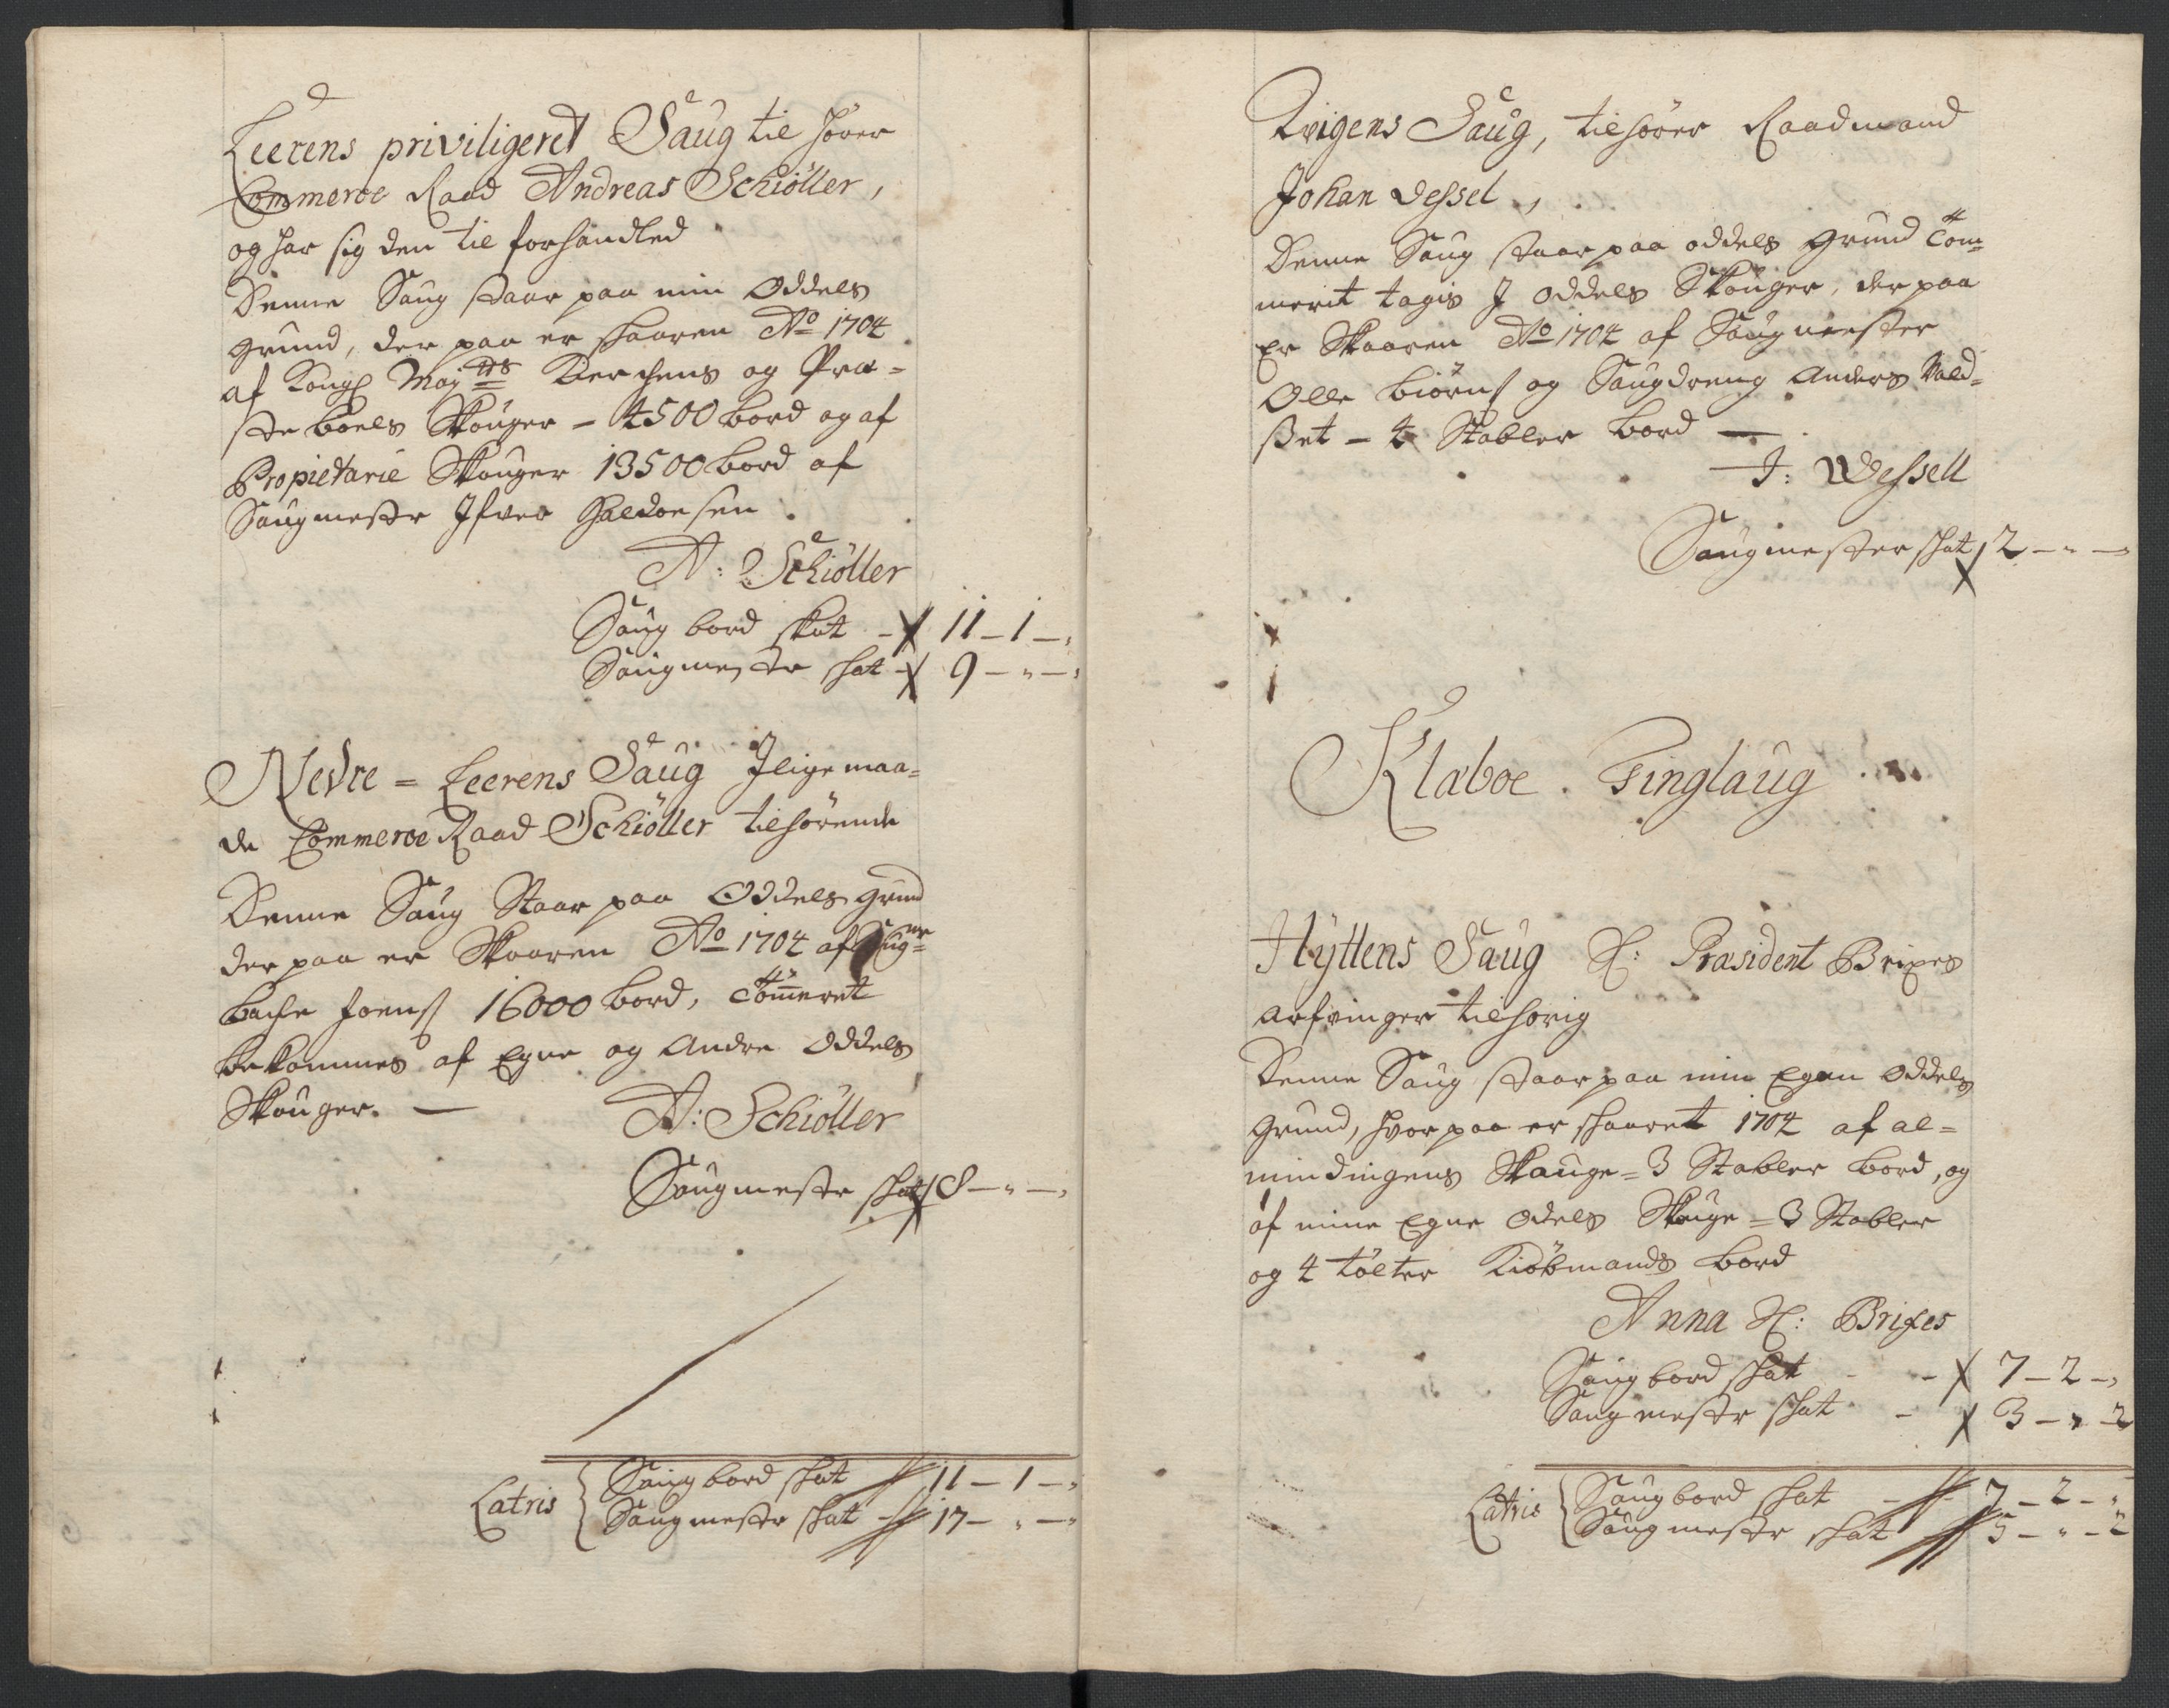 Leerens priviligeret Saug til hører
Commerce Raad Andreas Schiøller,
og har sig den til forhandled
Denne Saug staar paa min Oddels
grund, der paa er skaaren Aº 1704
af Kongl Maj:ts Kierchens og Præ=
ste boels Skouger - 4500 bord og af
Propietarie Skouger 13500 bord af
Saugmestr Ifver Haldorsen
A: Schiøller
Saug bord skat - 11 - 1 -
Saugmestr skat - 9 - " -
Nedre = Leerens Saug I lige maa=
de Commerce Raad Schiöller tilhörende
Denne Saug Staar paa Oddels grund
der paa er Skaaren Aº 1704 af Saugmr
bache Joens 16000 bord, Tömmeret
bekommes af Egne og Andre Oddels
Skouger. —
A: Schiöller
Saugmestr skat 8 - " -
Latris { Saug bord skat 11 - 1 - "
Saugmestr skat - 17 - " - "
Saug, tilhörer Raadmand
Johan Vessel,
Denne Saug staar paa oddels grund Töm=
merit tagis I oddels Skouger, der paa
Er Skaaren Aº 1704 af Saugmester
Olle biörns og Saugdreng Anders Vald=
set - 4 Stabler bord —
J: Wessell
Saugmester skat 2 - " -
Klæboe Tinglaug
Hyttens Saug Sl: Præsident Brixes
arfvinger tilhörig
Denne Saug staar paa min Egen oddels
grund, hvor paa er skaaret 1704 af al=
mindingens Skauge = 3 Stabler bord, og
af mine Egne Odels Skouge = 3 Stabler
og 4 tölter Kiöbmands bord
Anna Sl: Brixes
Saug bord skat - - 7 - 2 - "
Saug mestr skat - 3 - " - 2
Latris { Saug bord skat - 7 - 2 - "
Saug mestr skat 5 - " - 2